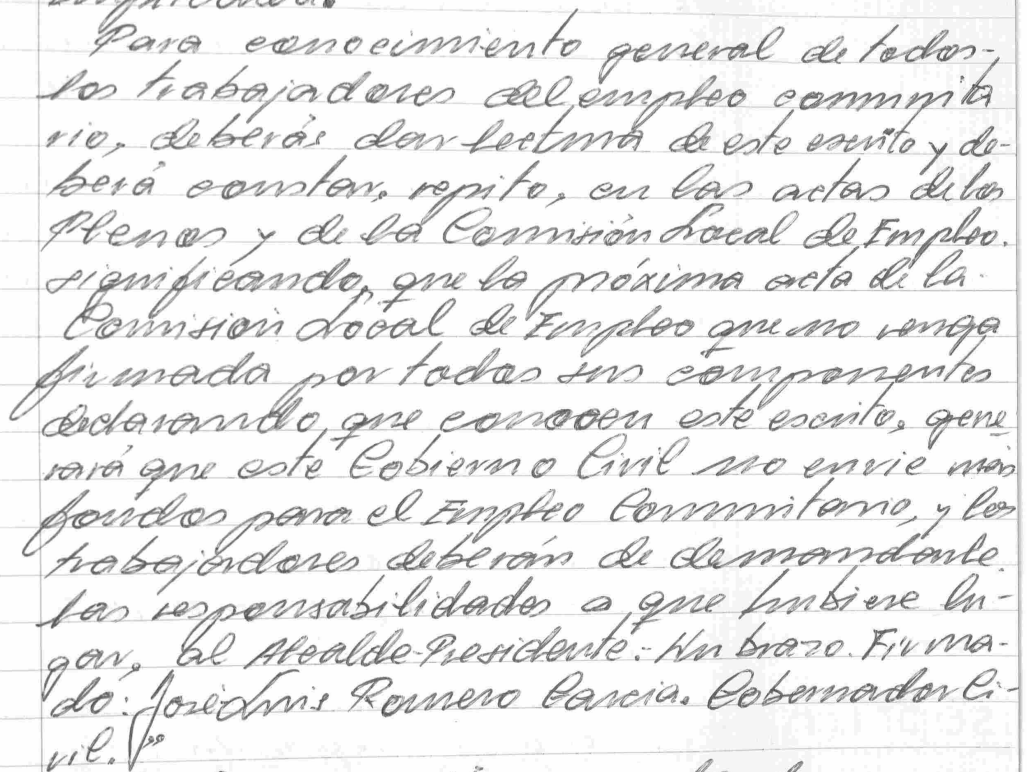 Para conocimiento general de todos-
los trabajadores del empleo comunita
rio, deberás dar lectura de este escrito y de-
berá constar, repito, en las actas de los
Plenos y de la Comisión Local de Empleo.
significando, que la próxima acta de la-
Comisión Local de Empleo que no venga
firmada por todos sus componentes
declarando, que conocen este escrito, gene
rará que este Gobierno Civil no envie más
fondos para el Empleo Comunitario, y los
trabajadores deberán de demandarte
las responsabilidades a que hubiere lu-
gar, al Alcalde-Presidente.- Un brazo. Firma-
do: José Luis Romero Garcia. Gobernador Ci-
vil."